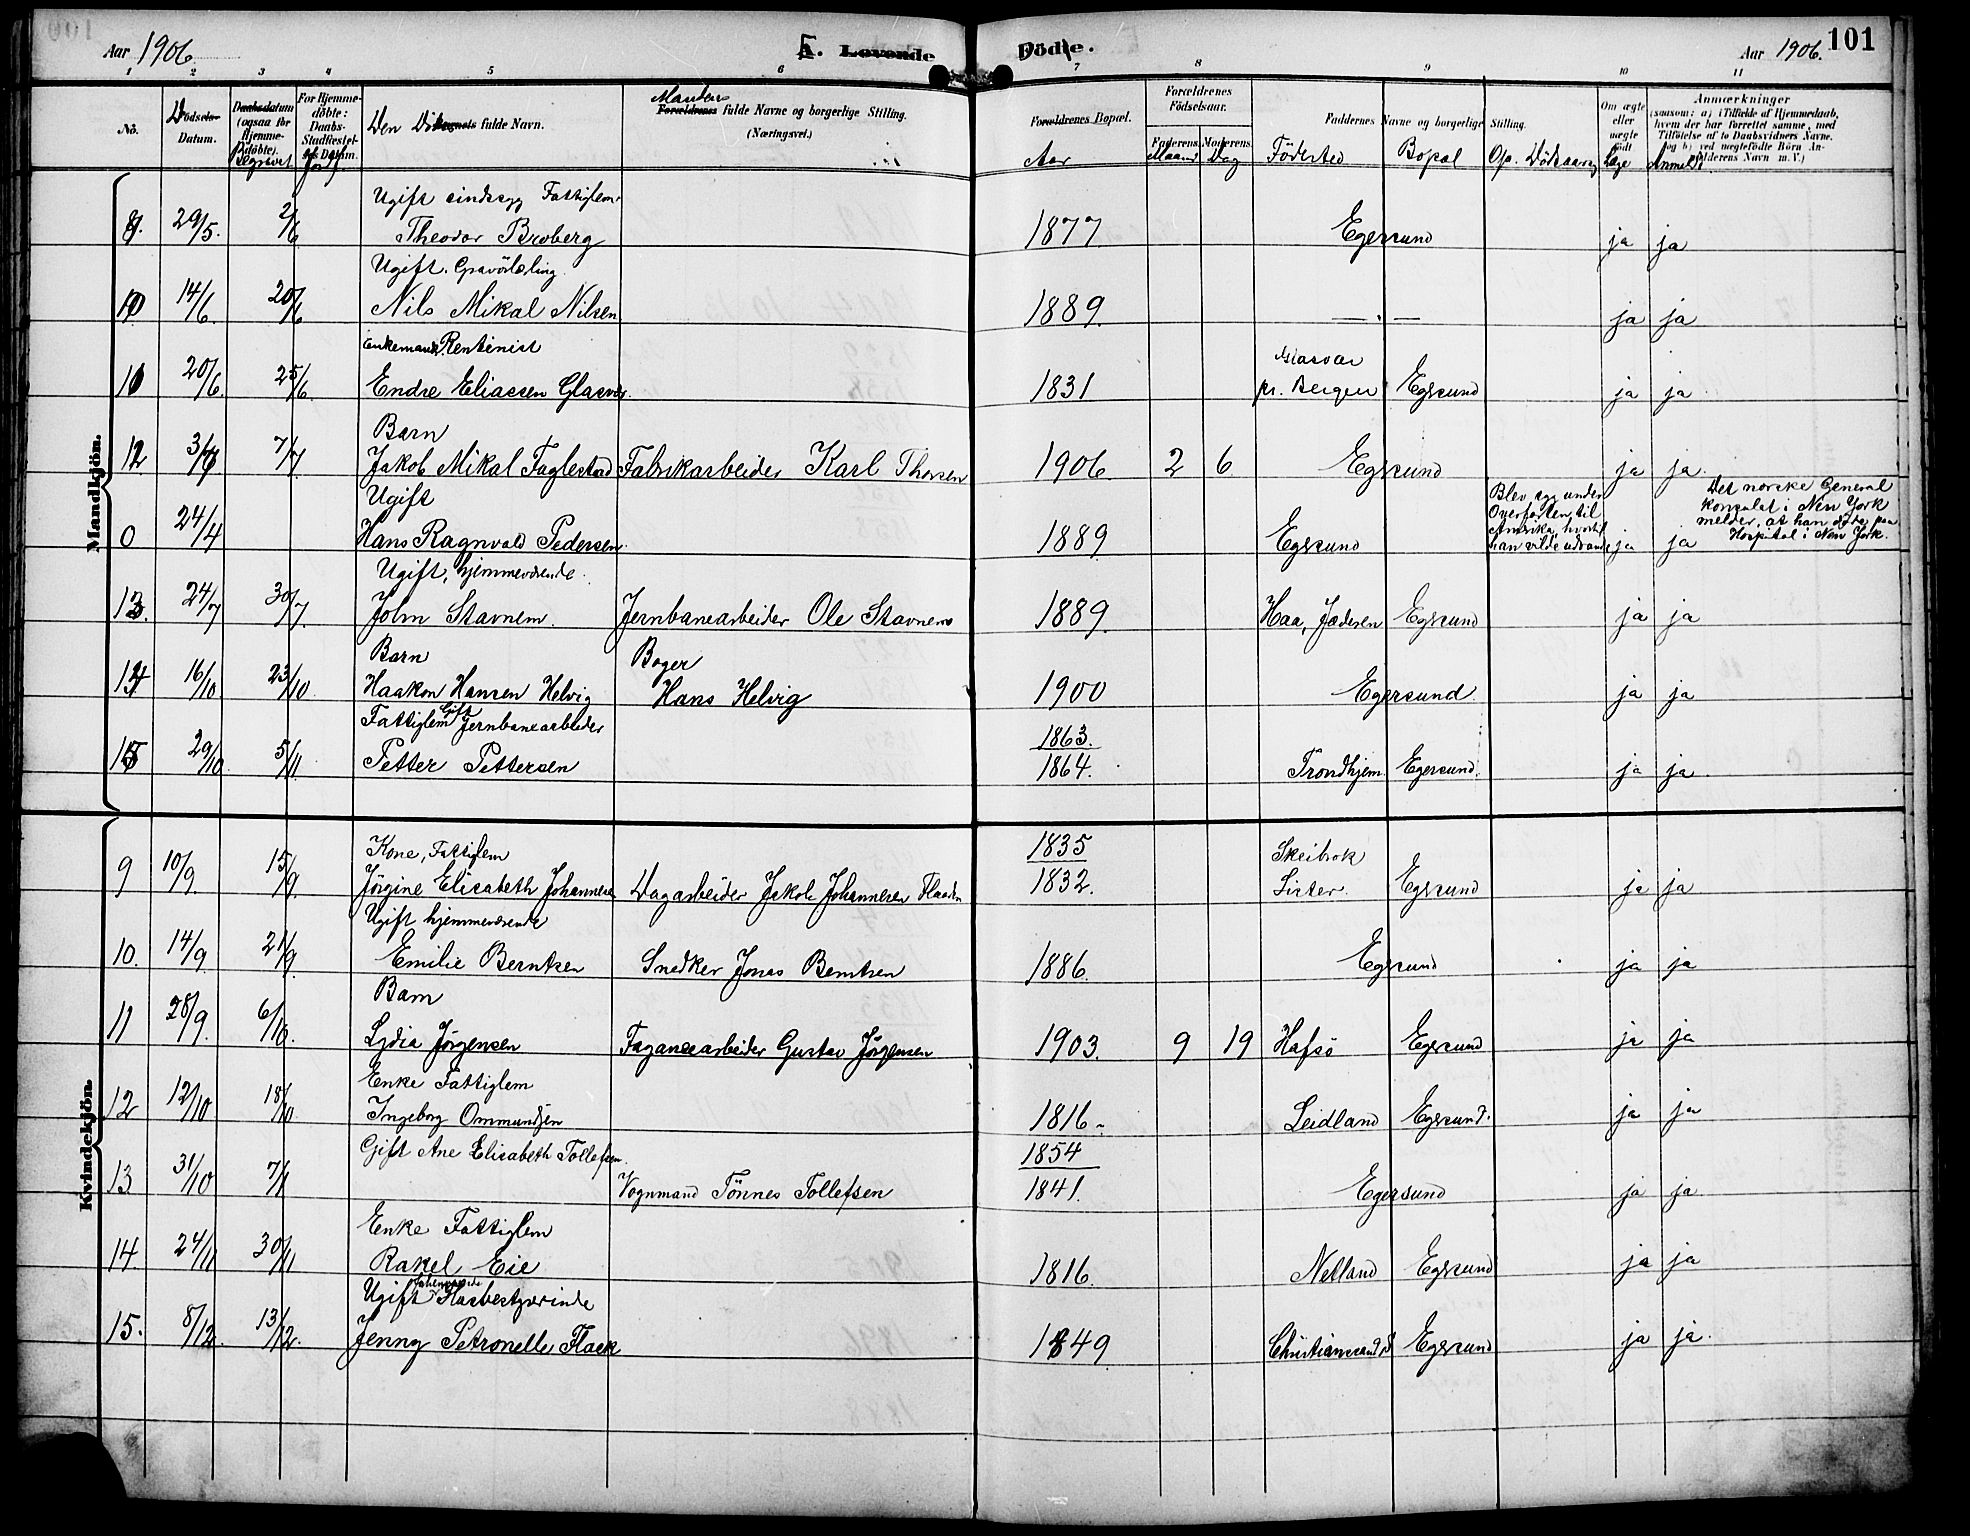 Aar 1906. F. Levende Döde. Aar 1906. 101
1 2 3 4 5 6 7 8 9 10 11
No. Döds- Datum. Daabsdatum (ogsaa for Hjemmedöbte). Begravet For Hjemmedöbte: Daabs-Stadfæstelses Datum. Jordf. Den Dödes fulde Navn. Mandens Forældrenes fulde Navne og borgerlige Stilling. (Næringsvei.)
Forældrenes Bopæl. Aar Forældrenes Födselsaar. Faderens. Maaned Moderens. Dag Faddernes Navne og borgerlige Stilling. Födested Bopæl Op. Dödsaarsag Om ægte eller uægte födt Læge Anmærkninger (saasom: a) i Tilfælde af Hjemmedaab, hvem der har forrettet samme, med Tilföielse af to Daabsvidners Navne, og b) ved uægtefödte Börn Anmeldt
Mandkjön.
Ugift sindssyg Fattiglem
9. 29/5. 2/6 Theodor Broberg 1877 Egersund ja ja
Ugift. Gravörlærling
10 14/6. 20/6 Nils Mikal Nilsen 1889. — . — ja ja
Enkemand. Rentenist
11 20/6. 25/6. Endre Eliassen Glasvær. 1831 Glasvær pr. Bergen Egersund ja ja
Barn
12 3/7 7/7. Jakob Mikal Faglestad Fabrikarbeider Karl Thorsen 1906 2 6 Egersund ja ja.
Ugift
0 24/4 Hans Ragnvald Pedersen. 1889 Egersund Blev syg under Overfarten til Amerika, hvortil han vilde udvandre ja ja Det norske General konsulat i New York melder, at han döde paa Hospital i New York.
Ugift, hjemmeværende.
13. 24/7 30/7. John Stavnem. Jernbanearbeider Ole Stavnem 1889. Haa, Jæderen Egersund ja ja
Barn Bager
14 16/10 23/10 Haakon Hansen Helvig Hans Helvig 1900 Egersund. ja ja
Fattiglem Gift Jernbanearbeider 1863.
15 29/10. 5/11. Petter Pettersen 1864. Trondhjem. Egersund. ja ja.
Kvindekjön.
Kone, Fattiglem 1835 Skeibrok
9 10/9. 15/9. Jörgine Elisabeth Johannesen Dagarbeider Jakob Johannesen 1832. Lister. Egersund ja ja
Ugift hjemmeværende
10. 14/9 21/9 Emilie Berntsen Snedker Jonas Berntsen 1886. Egersund ja ja
Barn
11 28/9. 6/10. Lydia Jörgensen Fayancearbeider Gustav Jörgensen 1903. 9 19 Hafsö Egersund ja ja
Enke Fattiglem
12 12/10 18/10 Ingeborg Ommundsen 1816 Leidland Egersund. ja ja
Gift Ane Elisabeth Tollefsen. 1854
13 31/10 7/11 Vognmand Tönnes Tollefsen 1841. Egersund ja ja.
Enke Fattiglem
14. 24/11 30/11 Rakel Eie 1816. Netland Egersund ja ja
Ugift
15. 8/12. 13/12. Jenny Petronelle Flack 1849 Christianssand S Egersund ja ja.